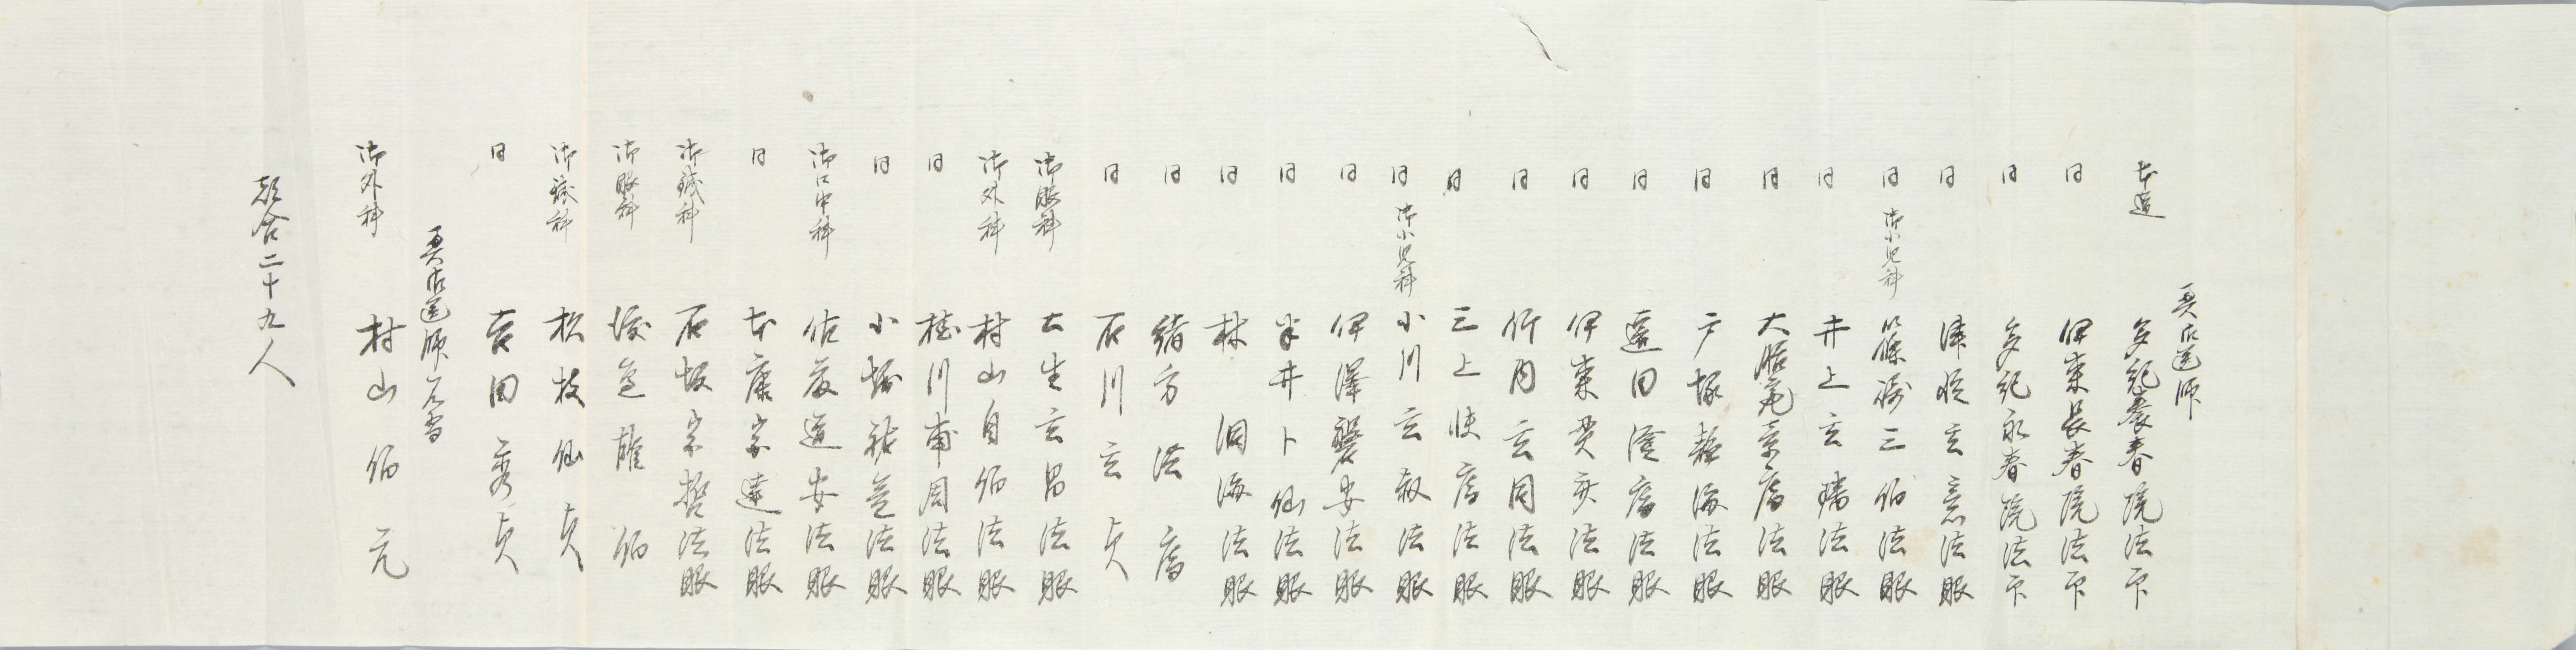 奥御医師
本道 多紀養春院法印
同 伊東長春院法印
同 多紀永春院法印
同 津軽玄意法眼
同 御小児科 篠崎三伯法眼
同 井上玄瑞法眼
同 大膳亮章庵法眼
同 戸塚静海法眼
同 遠田澄庵法眼
同 伊東貫斎法眼
同 竹内玄同法眼
同 三上快庵法眼
同 御小児科 小川玄叔法眼
同 伊澤磐安法眼
同 半井卜仙法眼
同 林洞海法眼
同 緒方洪庵
同 石川玄貞
御眼科 土生玄昌法眼
御外科 村山自伯法眼
同 桂川甫周法眼
同 小堀祐益法眼
御口中科 佐藤道安法眼
同 本康宗達法眼
御鍼科 石坂宗哲法眼
御眼科 渡邉雄伯
御鍼科 松枝仙貞
同 吉田秀貞
奥御医師
御外科 村山伯元
都合二十九人